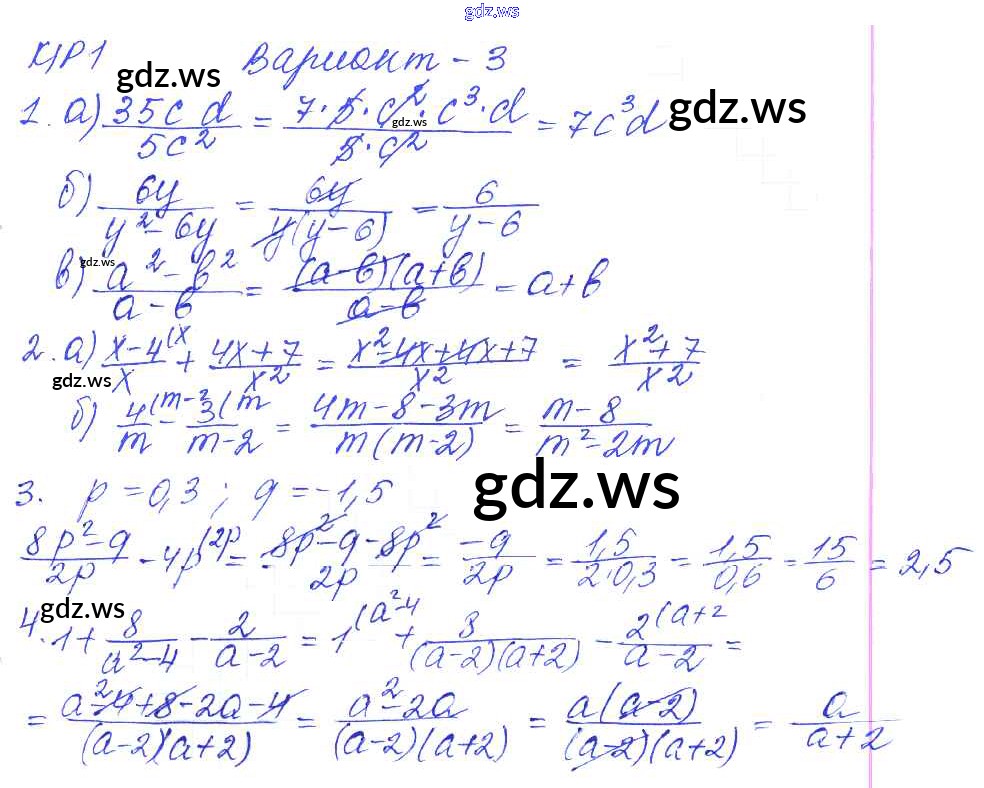 gdz.ws
К/Р1 Вариант - 3
gdz.ws
1. а) 35c d / 5c² = 7·5·c²·c³·d / 5·c² = 7c³d gdz.ws
gdz.ws
б) 6y / y²-6y = 6y / y(y-6) = 6 / y-6
в) a²-b² / a-b = (a-b)(a+b) / a-b = a+b
gdz.ws
2. а) x-4(x / x + 4x+7 / x² = x²-4x+4x+7 / x² = x²+7 / x²
gdz.ws
б) 4(m-2 / m - 3(m / m-2 = 4m-8-3m / m(m-2) = m-8 / m²-2m
3. p=0,3; q=-1,5 gdz.ws
8p²-q / 2p - 4p(2p = 8p²-q-8p² / 2p = -q / 2p = 1,5 / 2·0,3 = 1,5 / 0,6 = 15 / 6 = 2,5
gdz.ws
4. 1 + 8 / a²-4 - 2 / a-2 = 1(a²-4 + 8 / (a-2)(a+2) - 2(a+2 / a-2 =
= a²-4+8-2a-4 / (a-2)(a+2) = a²-2a / (a-2)(a+2) = a(a-2) / (a-2)(a+2) = a / a+2